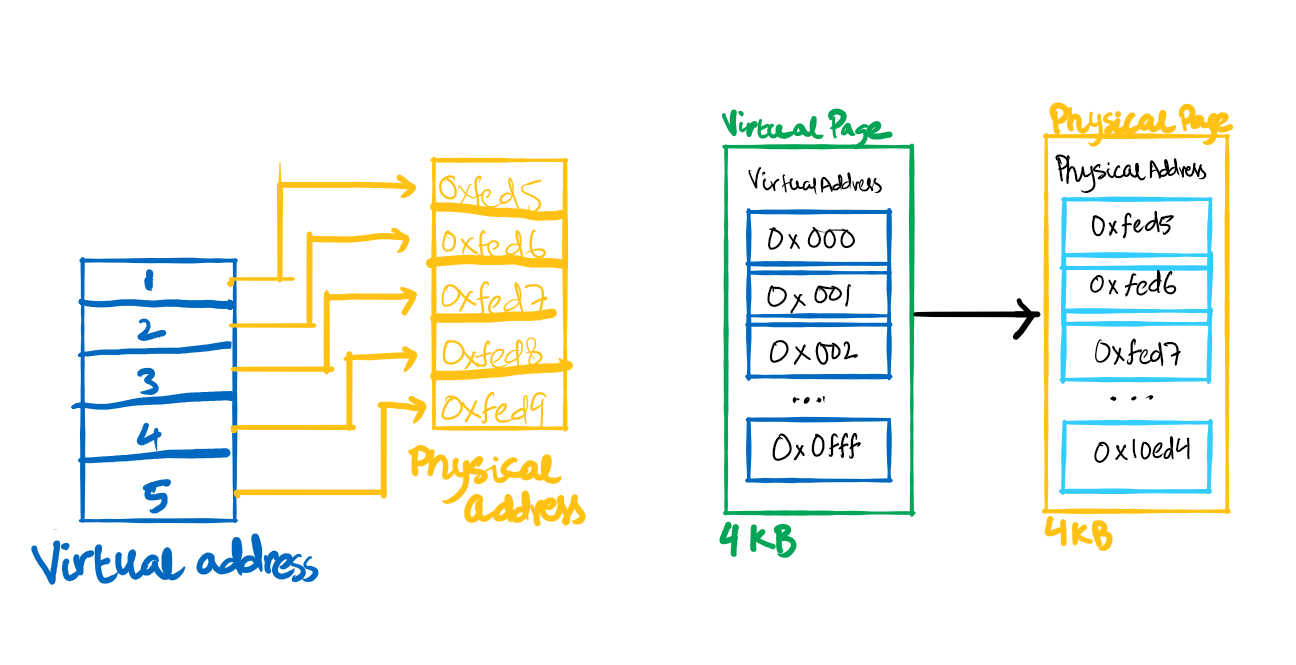 1
2
3
4
5
Virtual address
0xfed5
0xfed6
0xfed7
0xfed8
0xfed9
Physical
address
Virtual Page
Virtual Address
0x000
0x001
0x002
...
0x0fff
4 KB
Physical Page
Physical Address
0xfed5
0xfed6
0xfed7
...
0x10ed4
4KB